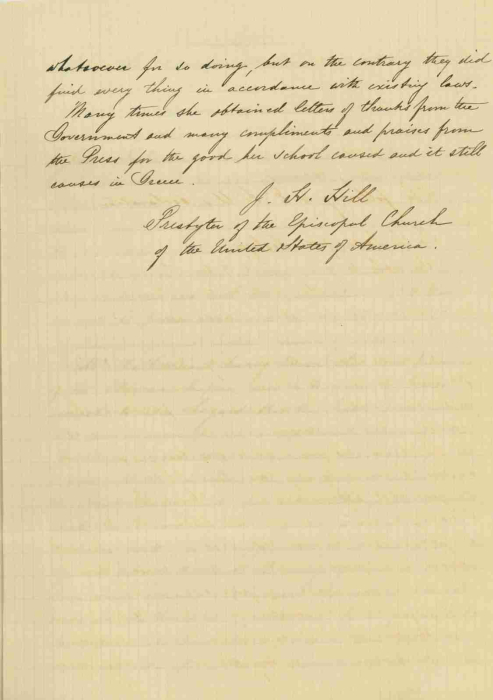 whatsoever for so doing, but on the contrary they did
find every thing in accordance with existing laws.
Many times she obtained letters of thanks from the
Government and many compliments and praises from
the Press for the good her school caused and it still
causes in Greece.
J. H. Hill
Presbyter of the Episcopal Church
of the United States of America.